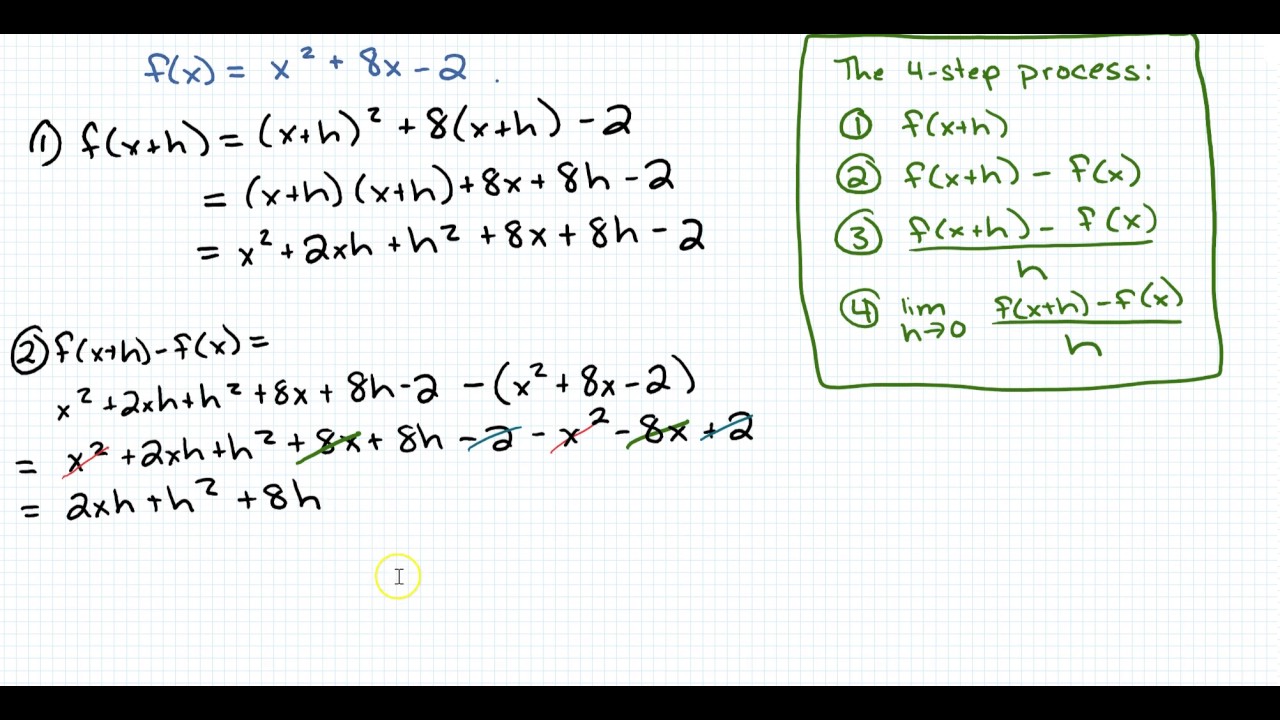 f(x) = x² + 8x - 2 .
① f(x+h) = (x+h)² + 8(x+h) - 2
= (x+h)(x+h) + 8x + 8h - 2
= x² + 2xh + h² + 8x + 8h - 2
② f(x+h) - f(x) =
x² + 2xh + h² + 8x + 8h - 2 - (x² + 8x - 2)
= x² + 2xh + h² + 8x + 8h - 2 - x² - 8x + 2
= 2xh + h² + 8h
The 4-step process:
① f(x+h)
② f(x+h) - f(x)
③ f(x+h) - f(x)
h
④ lim f(x+h) - f(x)
h→0 h